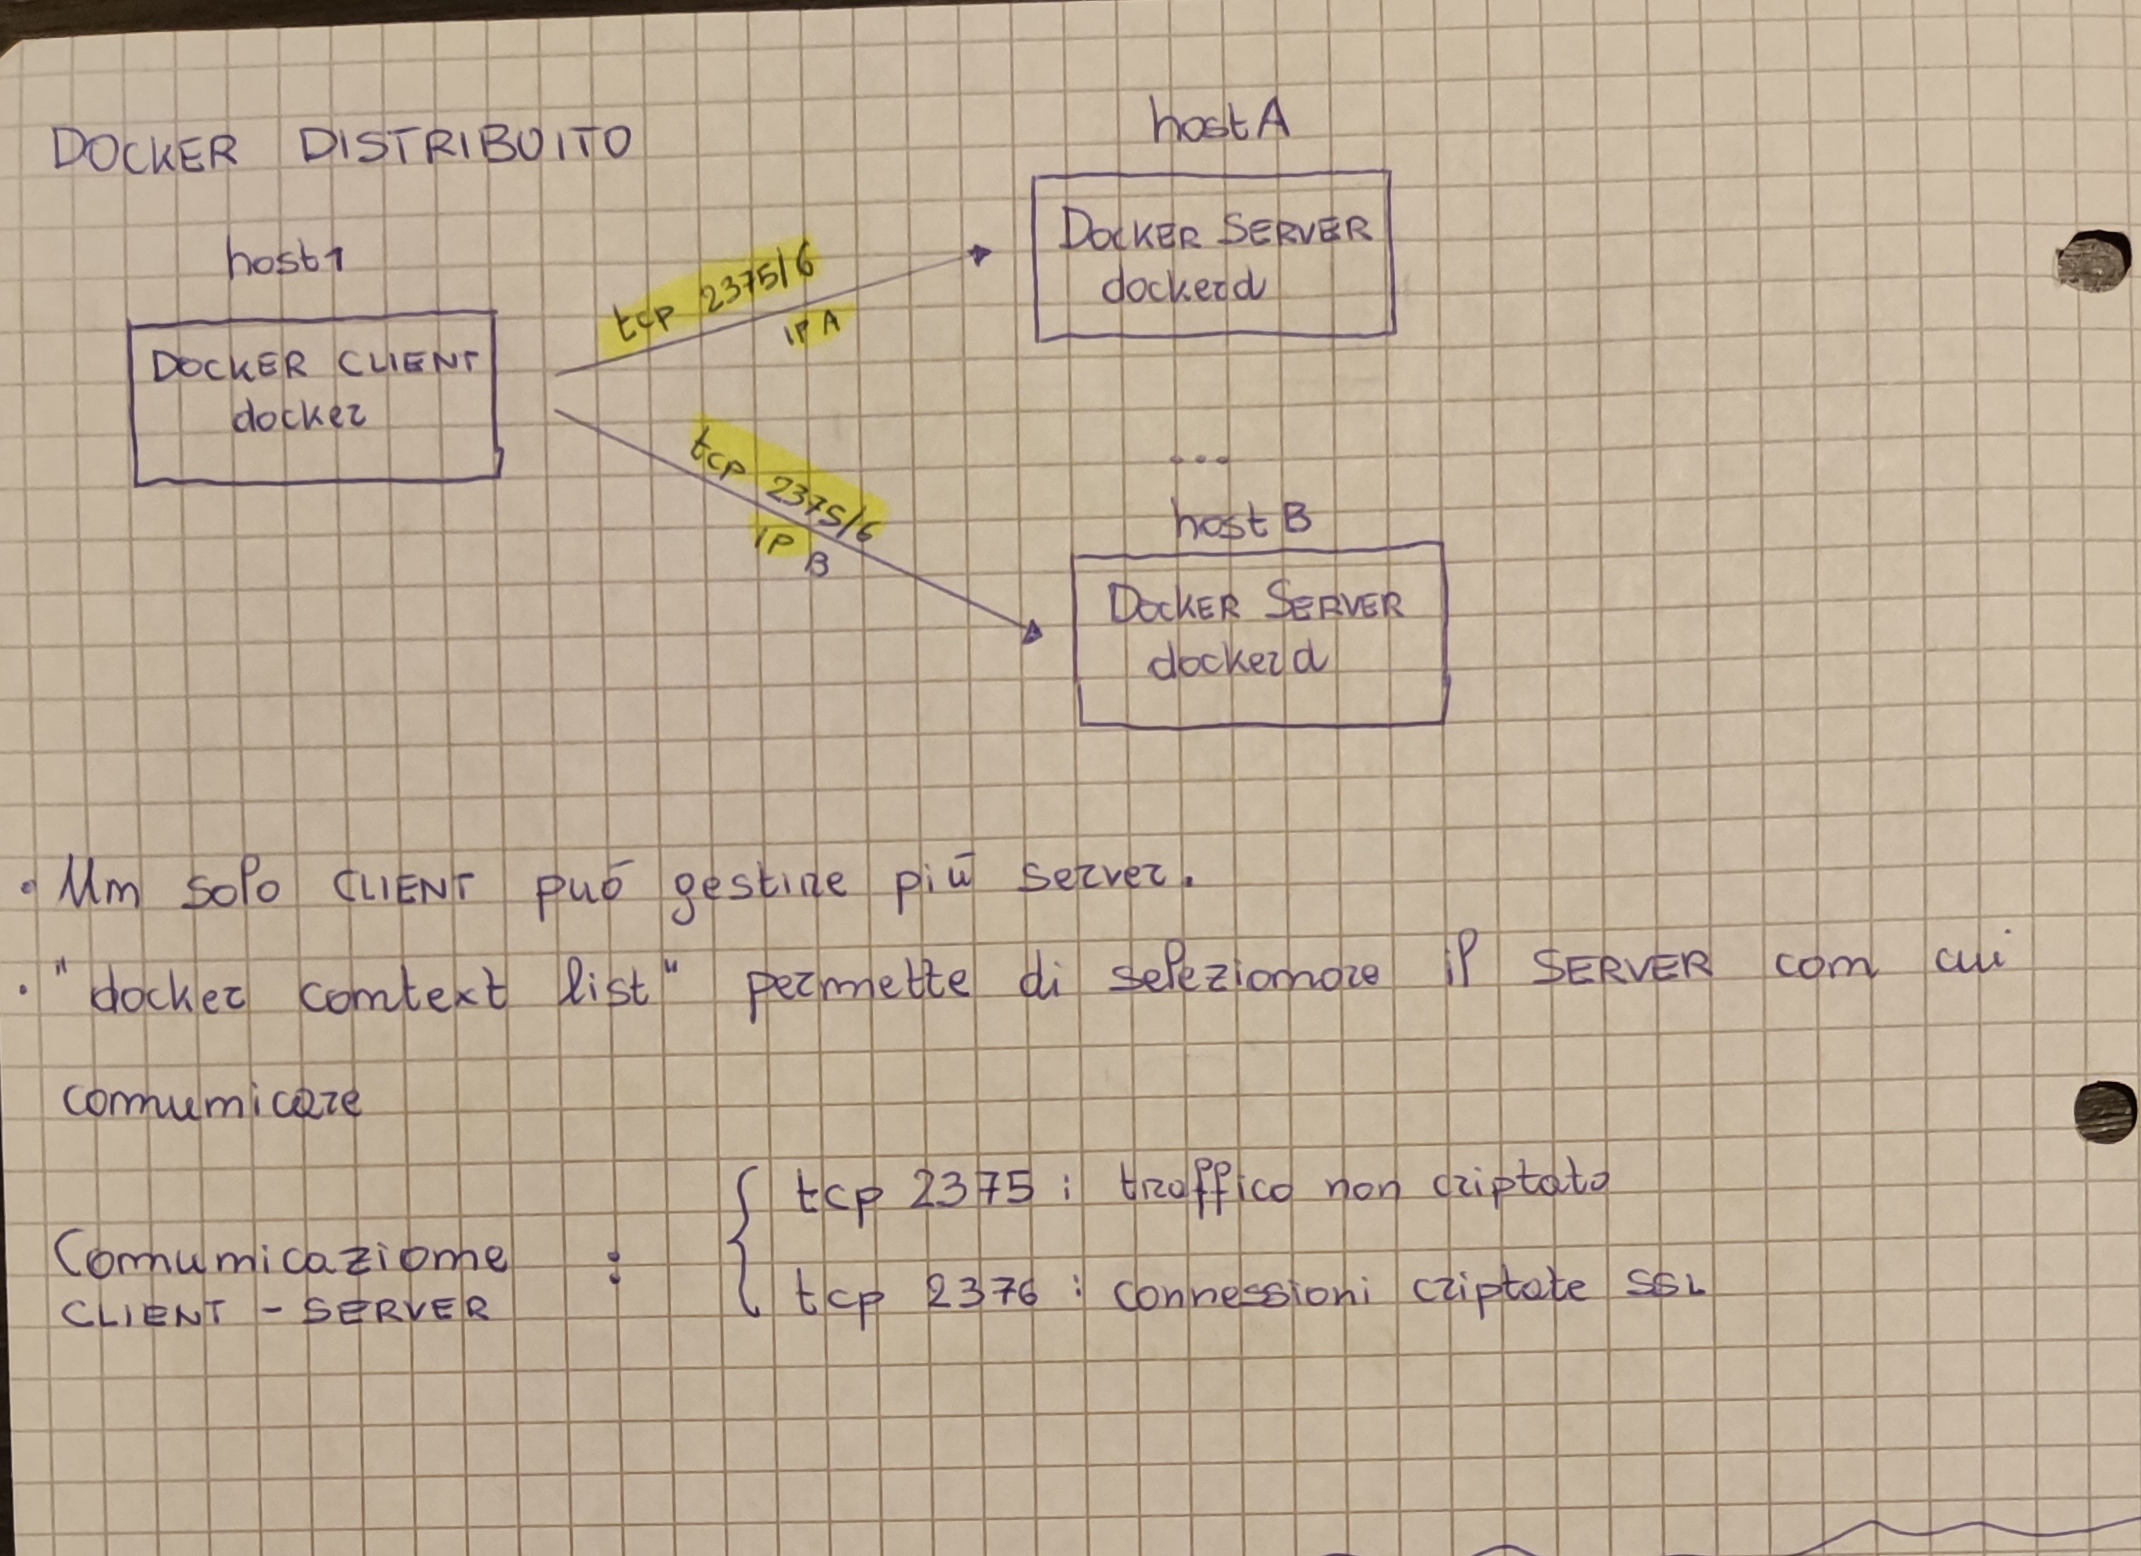 DOCKER DISTRIBUITO
host A
host 1
DOCKER SERVER
dockerd
tcp 2375/6
IP A
DOCKER CLIENT
docker
tcp 2375/6
IP B
...
host B
DOCKER SERVER
dockerd
• Un solo CLIENT può gestire più server.
• "docker context list" permette di selezionare il SERVER con cui
comunicare
Comunicazione :
CLIENT - SERVER
{ tcp 2375 : traffico non criptato
tcp 2376 : connessioni criptate SSL